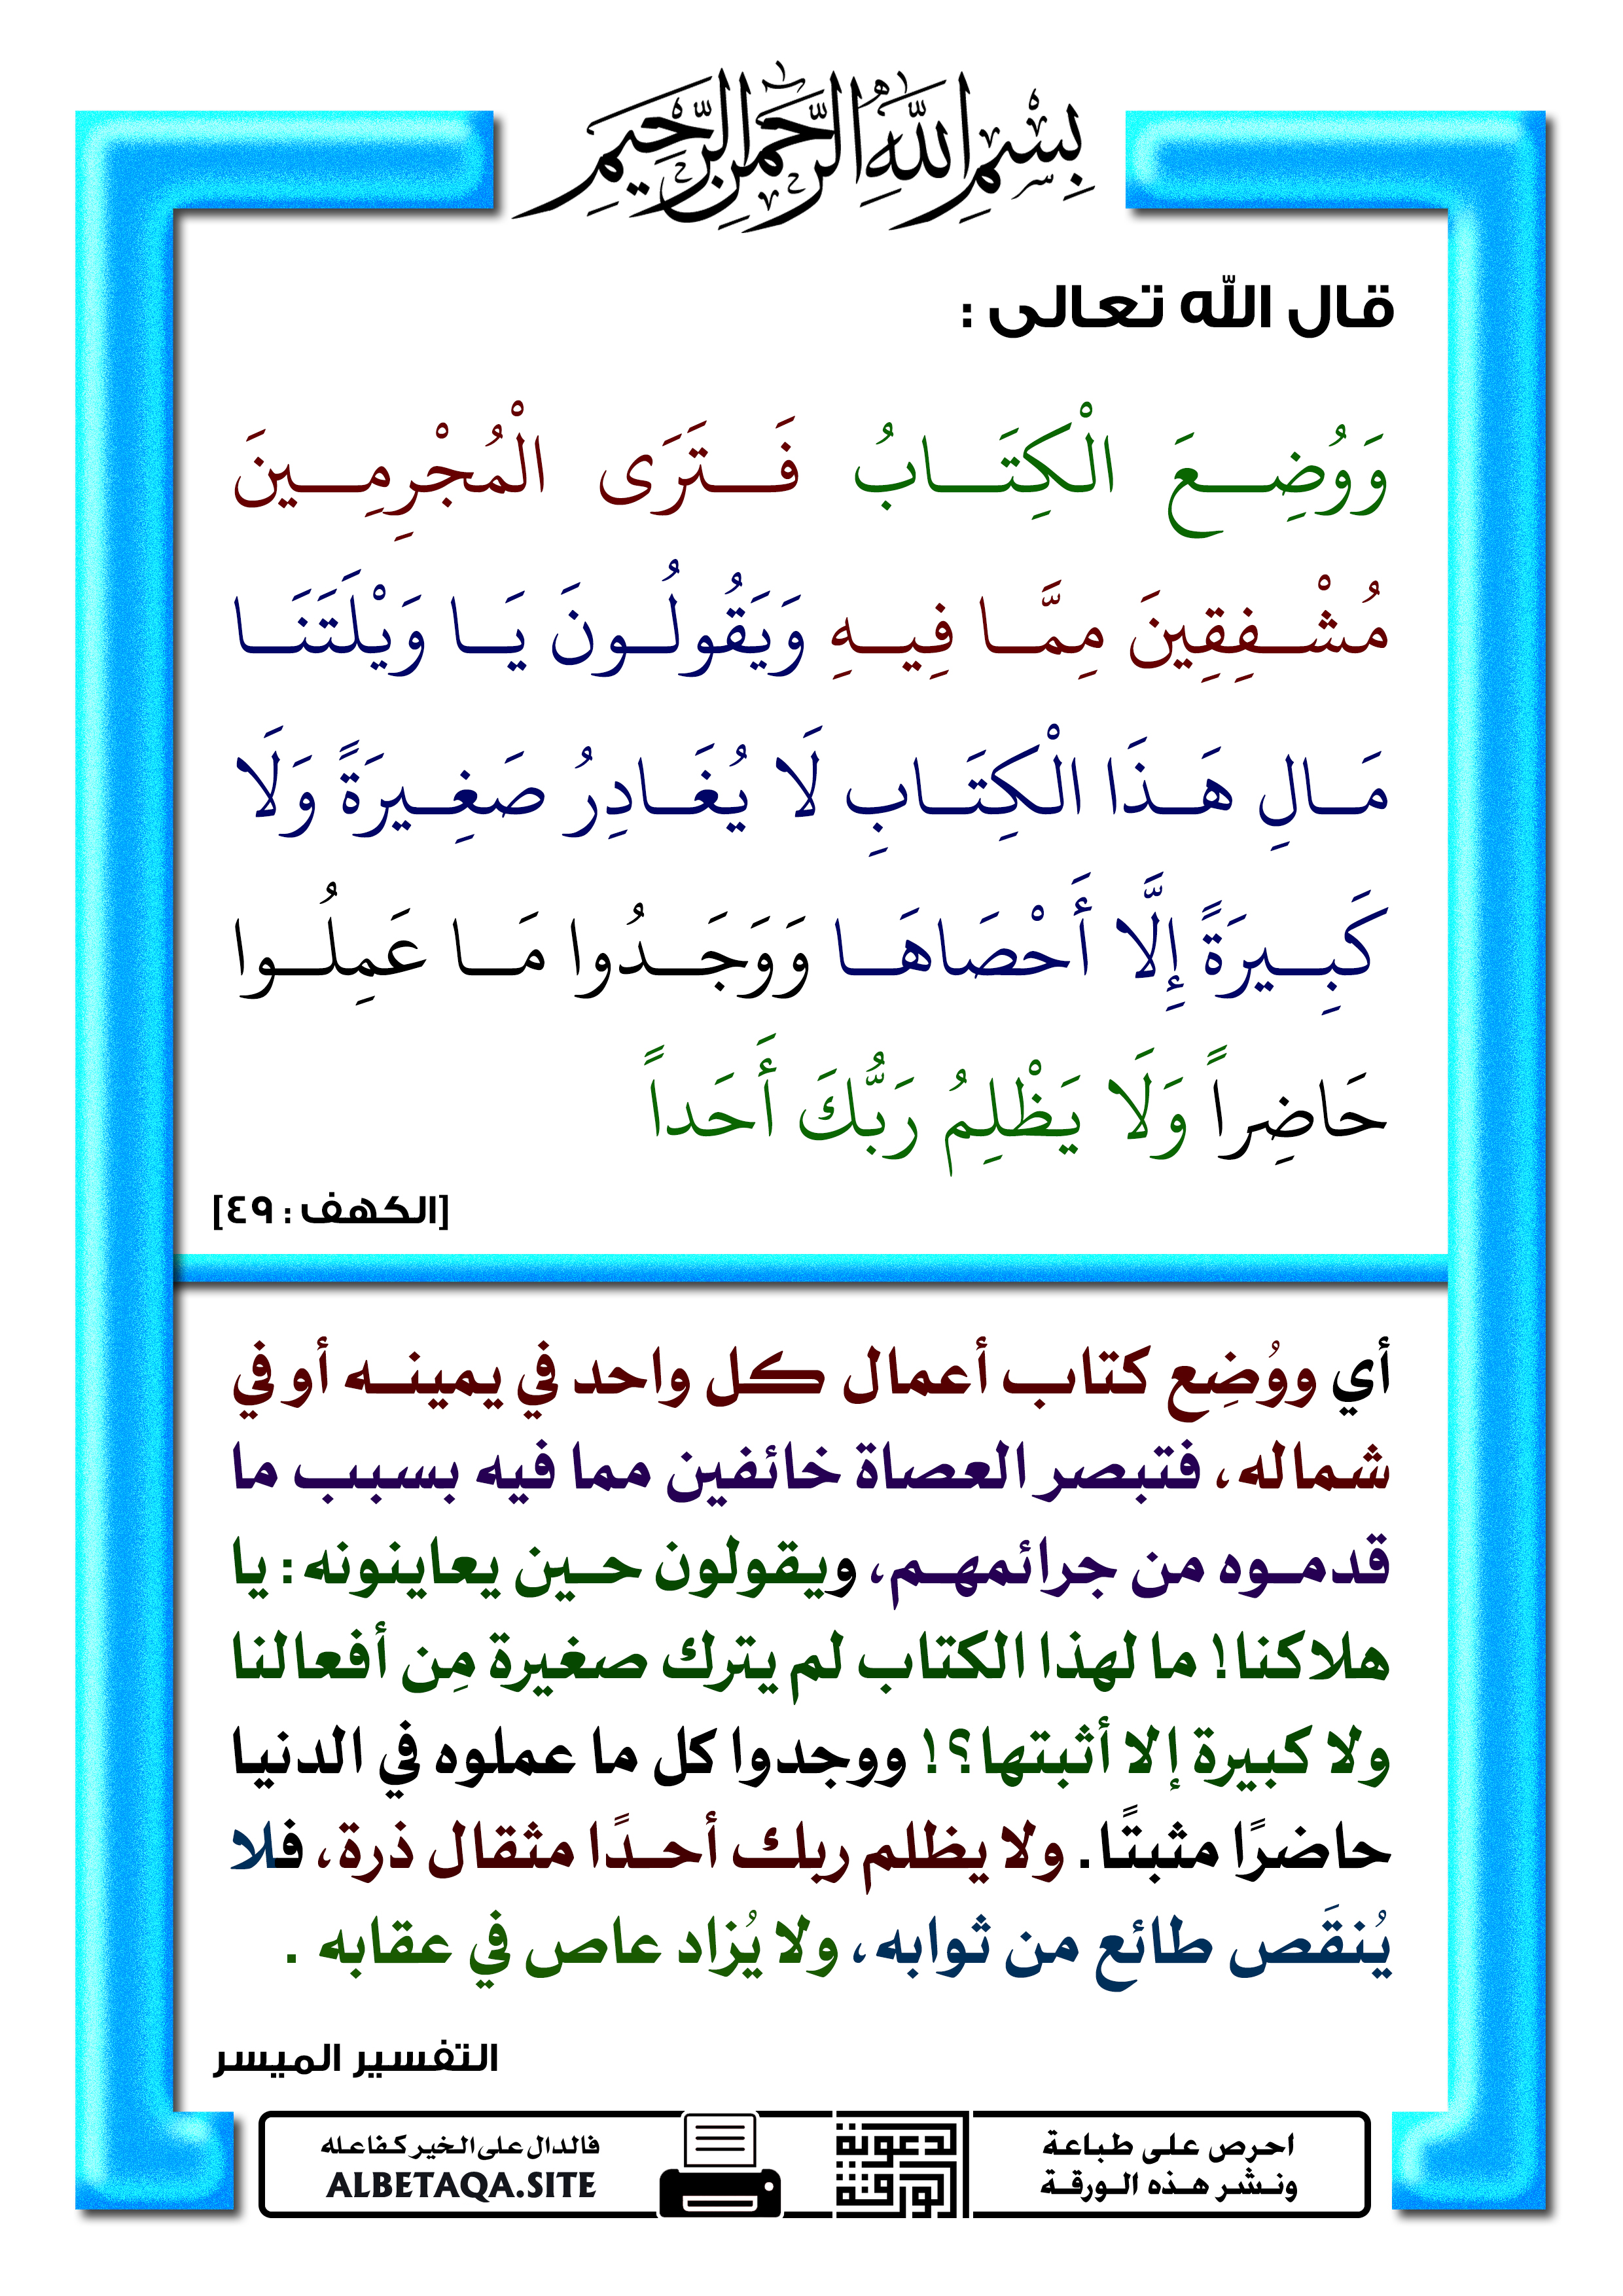 بِسْمِ اللَّهِ الرَّحْمَٰنِ الرَّحِيمِ
قال الله تعالى :
وَوُضِعَ الْكِتَابُ فَتَرَى الْمُجْرِمِينَ
مُشْفِقِينَ مِمَّا فِيهِ وَيَقُولُونَ يَا وَيْلَتَنَا
مَالِ هَذَا الْكِتَابِ لَا يُغَادِرُ صَغِيرَةً وَلَا
كَبِيرَةً إِلَّا أَحْصَاهَا وَوَجَدُوا مَا عَمِلُوا
حَاضِراً وَلَا يَظْلِمُ رَبُّكَ أَحَداً
[الكهف : ٤٩]
أي ووُضِع كتاب أعمال كل واحد في يمينه أو في
شماله، فتبصر العصاة خائفين مما فيه بسبب ما
قدموه من جرائمهم، ويقولون حين يعاينونه: يا
هلاكنا! ما لهذا الكتاب لم يترك صغيرة مِن أفعالنا
ولا كبيرة إلا أثبتها؟! ووجدوا كل ما عملوه في الدنيا
حاضرًا مثبتًا. ولا يظلم ربك أحدًا مثقال ذرة، فلا
يُنقَص طائع من ثوابه، ولا يُزاد عاص في عقابه .
التفسير الميسر
احرص على طباعة
ونشر هذه الورقة
الورقة الدعوية
فالدال على الخير كفاعله
ALBETAQA.SITE